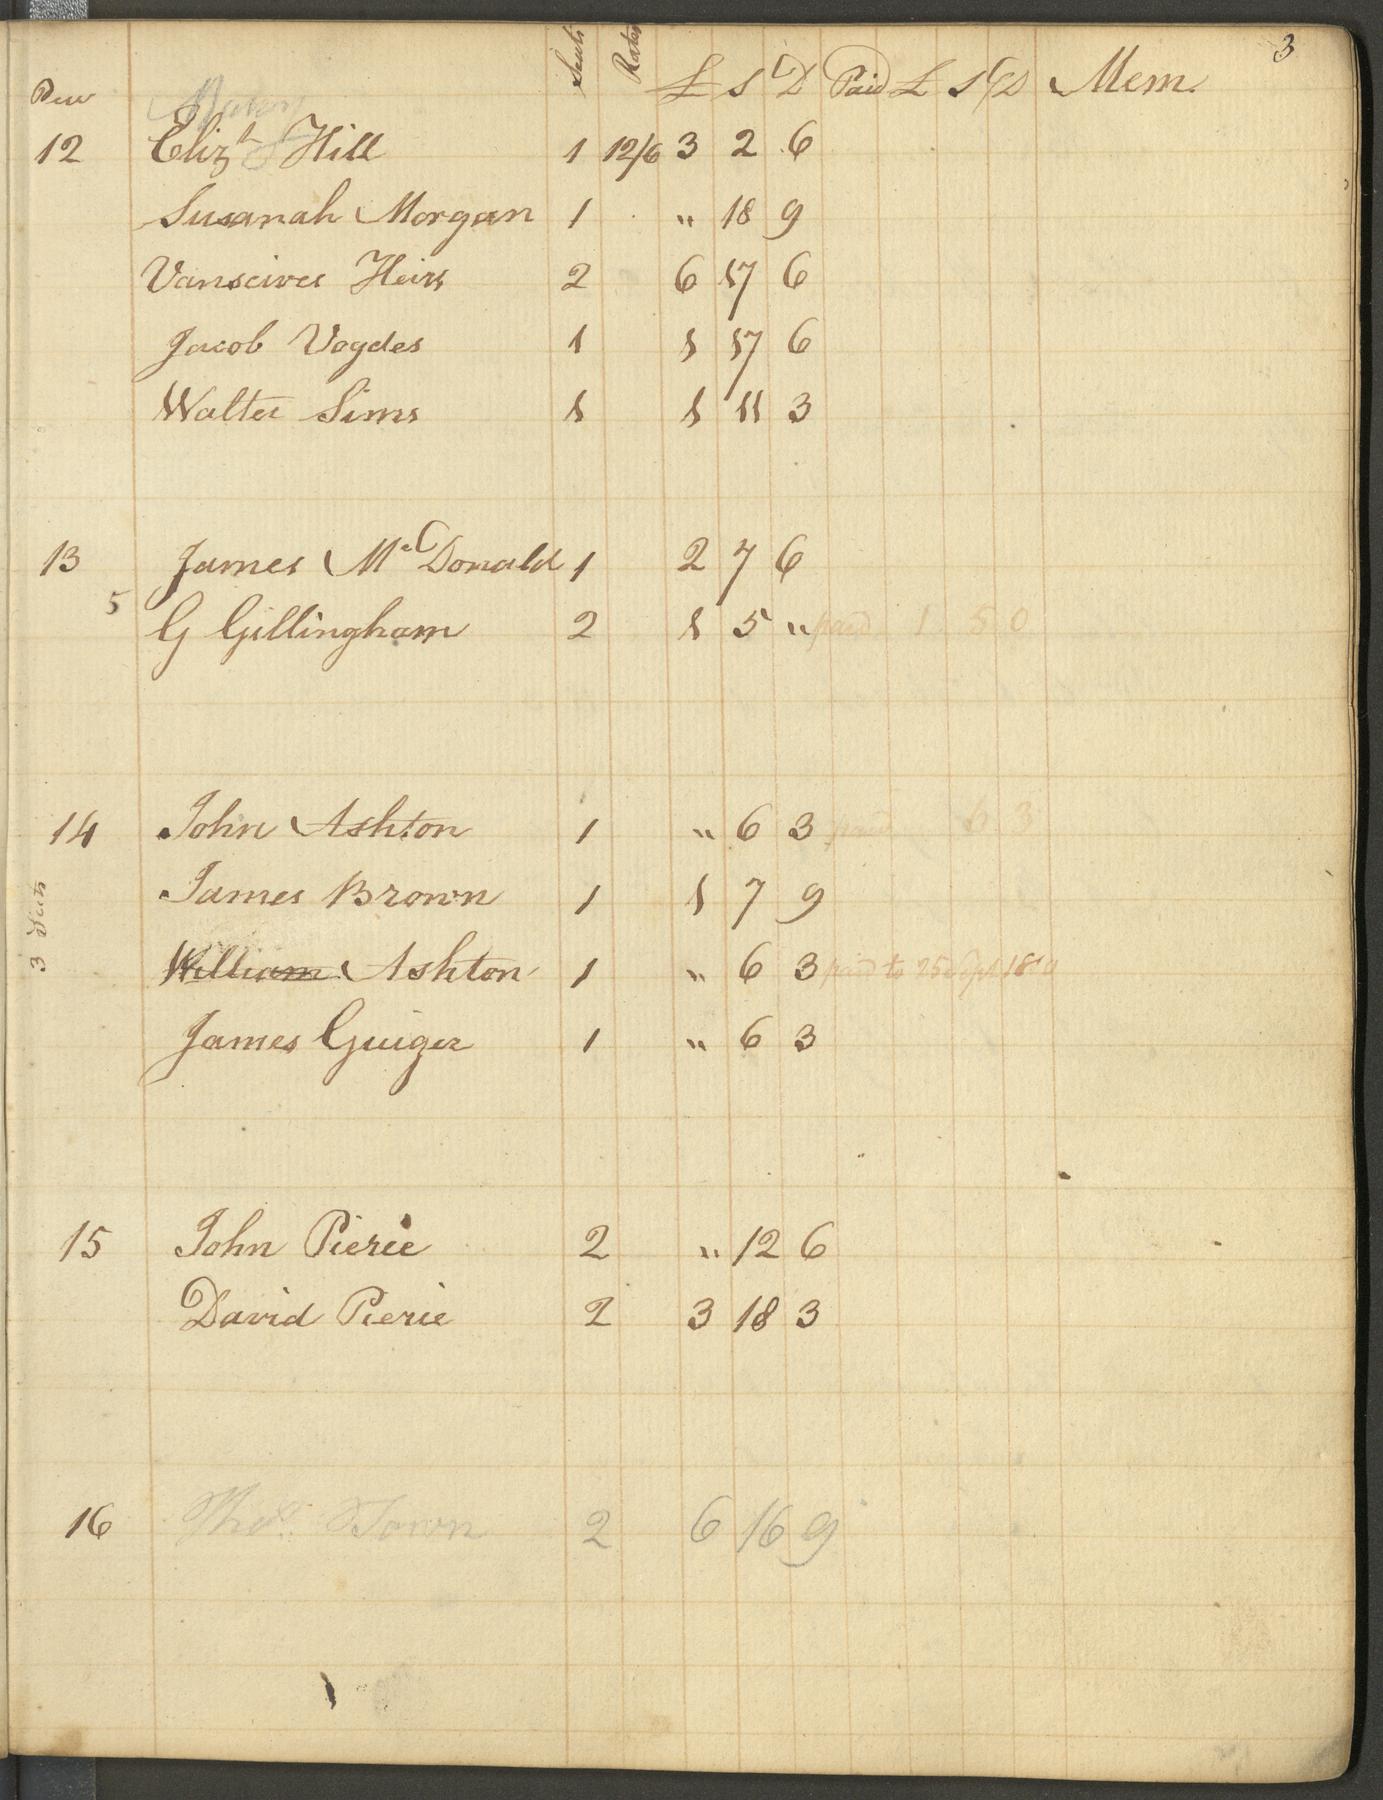 3
Pew Seats Rates £ S D Paid £ S D Mem.
12 Elizh Hill 1 12/6 3 2 6
Susanah Morgan 1 " 18 9
Vanseiver Heirs 2 6 17 6
Jacob Vogdes 1 1 17 6
Walter Sims 1 1 11 3
13 James McDonald 1 2 7 6
5 G Gillingham 2 1 5 " paid 1 5 0
14 John Ashton 1 " 6 3 paid 6 3
3 Seats
James Brown 1 1 7 9
William Ashton 1 " 6 3 paid to 25
James Guiger 1 " 6 3
15 John Pierie 2 " 12 6
David Pierie 2 3 18 3
16 Thos. Town 2 6 16 9